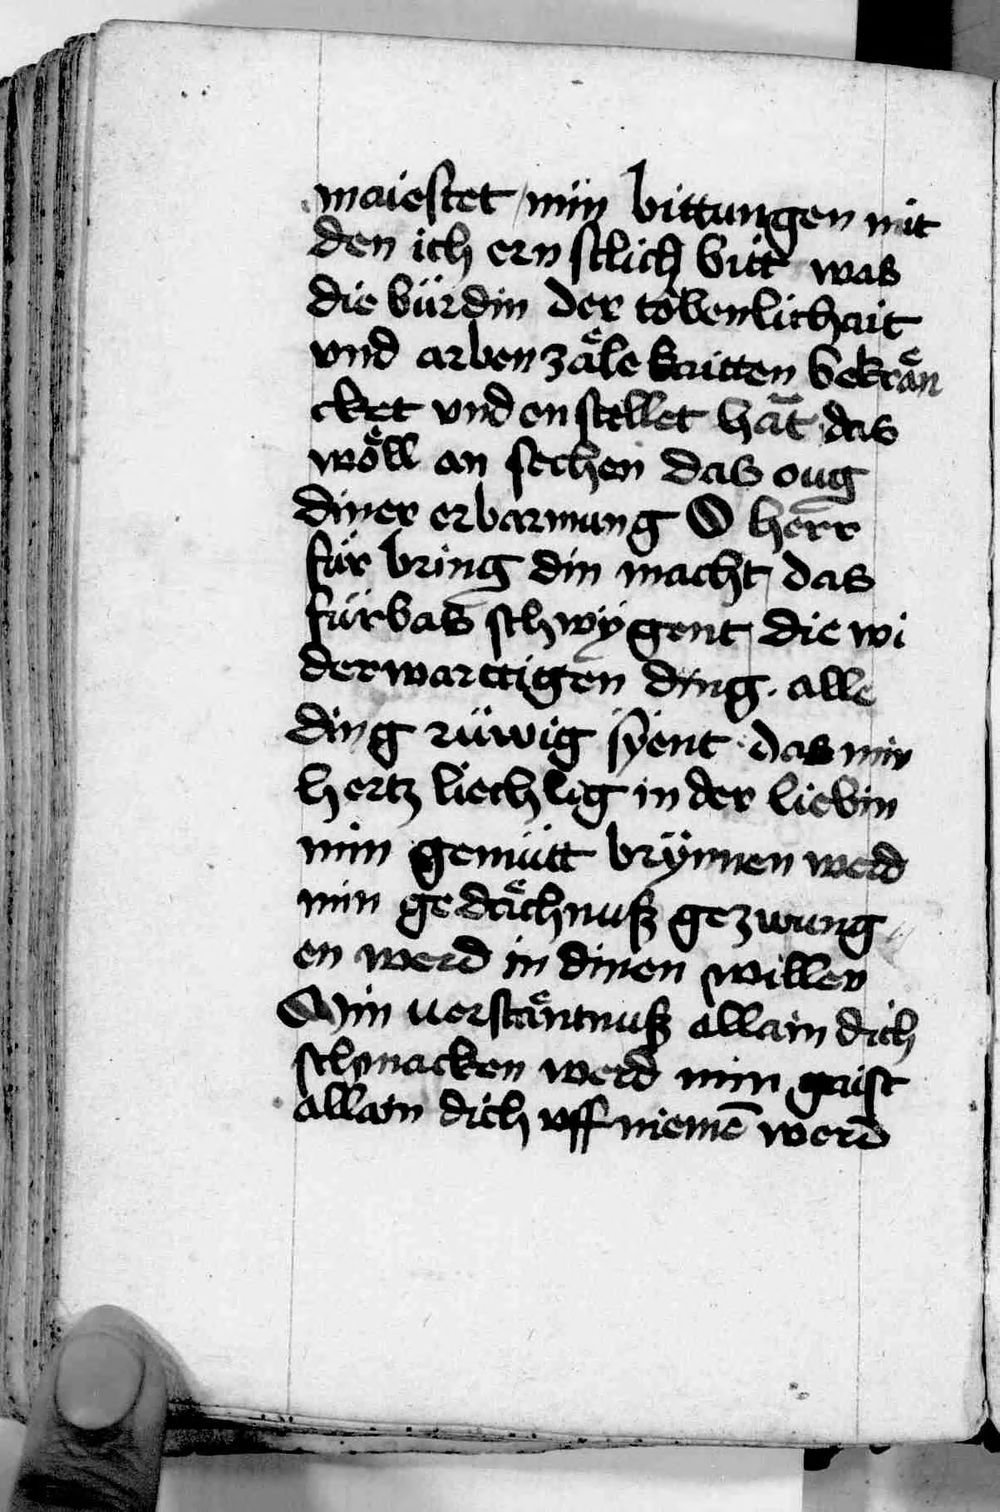 maiestet min bittungen mit
den ich ernstlich bitt was
die bürdin der töbenlichait
vnd arbenzäle  bekrän
cket vnd enstellet hat das
wöll an sechen das oug
diner erbarmung O herr
für bring din macht das
fürbas schwÿgent die wi
derwarttigen ding. alle
ding rüwig sÿent das min
hertz liechlig in der liebin
min gemütt brÿnnen werd
min gedächnuß gezwung
en werd in dinen willen
Min uerständtnuß allain dich
schmacken werd min gaist
allain dich vff niemē werd